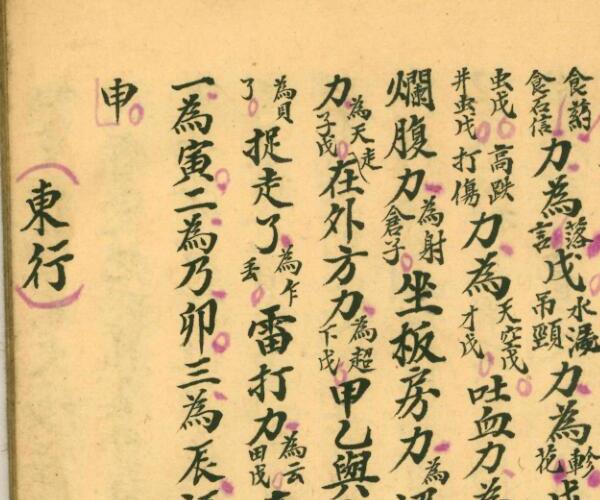 食葯食石信力為落言戊水湯吊頸力為軫花
虫戊井虫戊高跌打傷力為天空戊才戊吐血力為
爛腹力為射倉子坐板房力為
力為天走子戊在外方力為超下戊甲乙與
為貝了捉走了為乍丢雷打力為云田戊
一為寅二為乃卯三為辰
申
(東行)